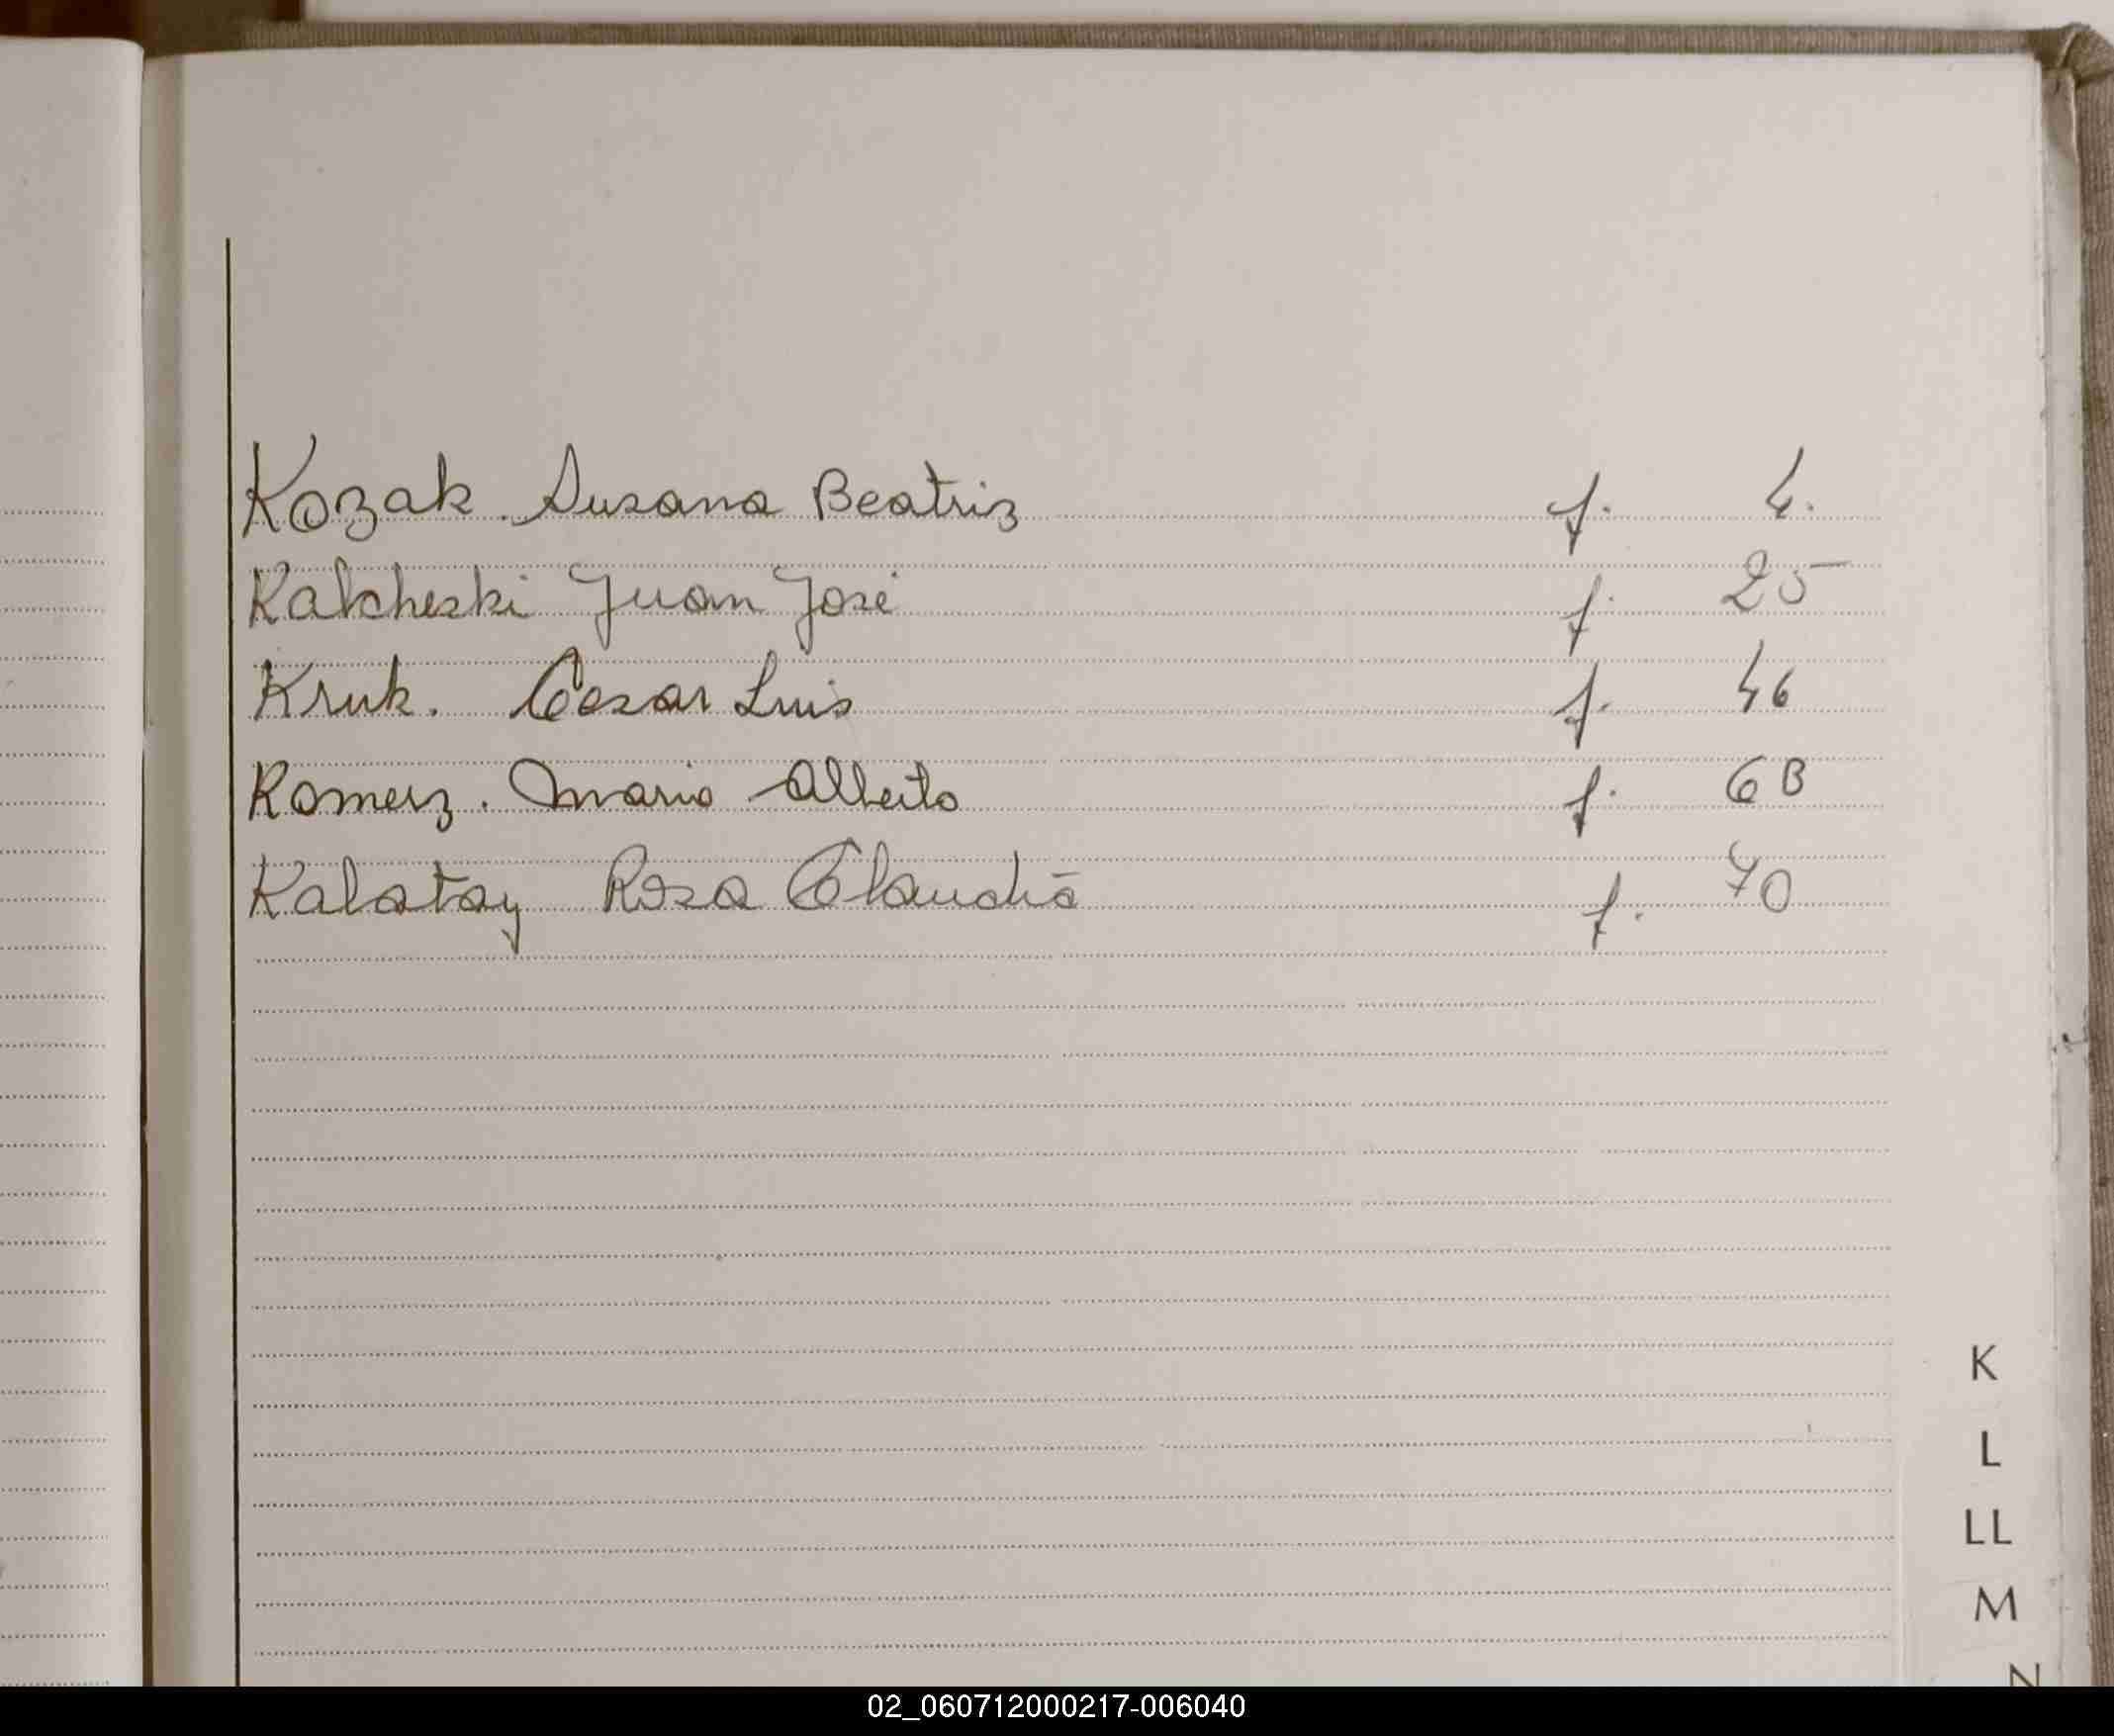 Kozak. Susana Beatriz f. 4.
Kalcheski Juan José f. 25
Kruk. Cesar Luis f. 46
Komerz. Mario Alberto f. 68
Kalatay Rosa Claudia f. 70
K
L
LL
M
N
02_060712000217-006040